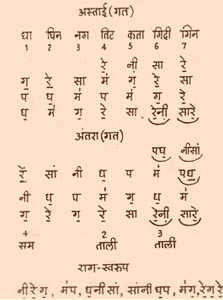 अस्ताई(गत)
धा धिन नग तिट कता गिदी गिन
1 2 3 4 5 6 7
रे॒ नी सा रे॒
ग॒ रे॒ सा मं ग॒ रे॒ सा
प ध॒ प मं प मं ग॒
ध॒ मं ग॒ रे॒ सा रे॒नी सारे॒
अंतरा(गत)
पध॒ नीसां
रें॒ सां नी ध॒ प मं पध॒
नी ध॒ प मं ग॒ मं ध॒
ग॒ रे॒ ग॒ रे॒ सा रे॒नी सारे॒
+ 2 3
सम ताली ताली
राग-स्वरुप
नी़रे॒ग॒, मंप, ध॒नीसां, सांनीध॒प, मंग॒,रे॒ग॒